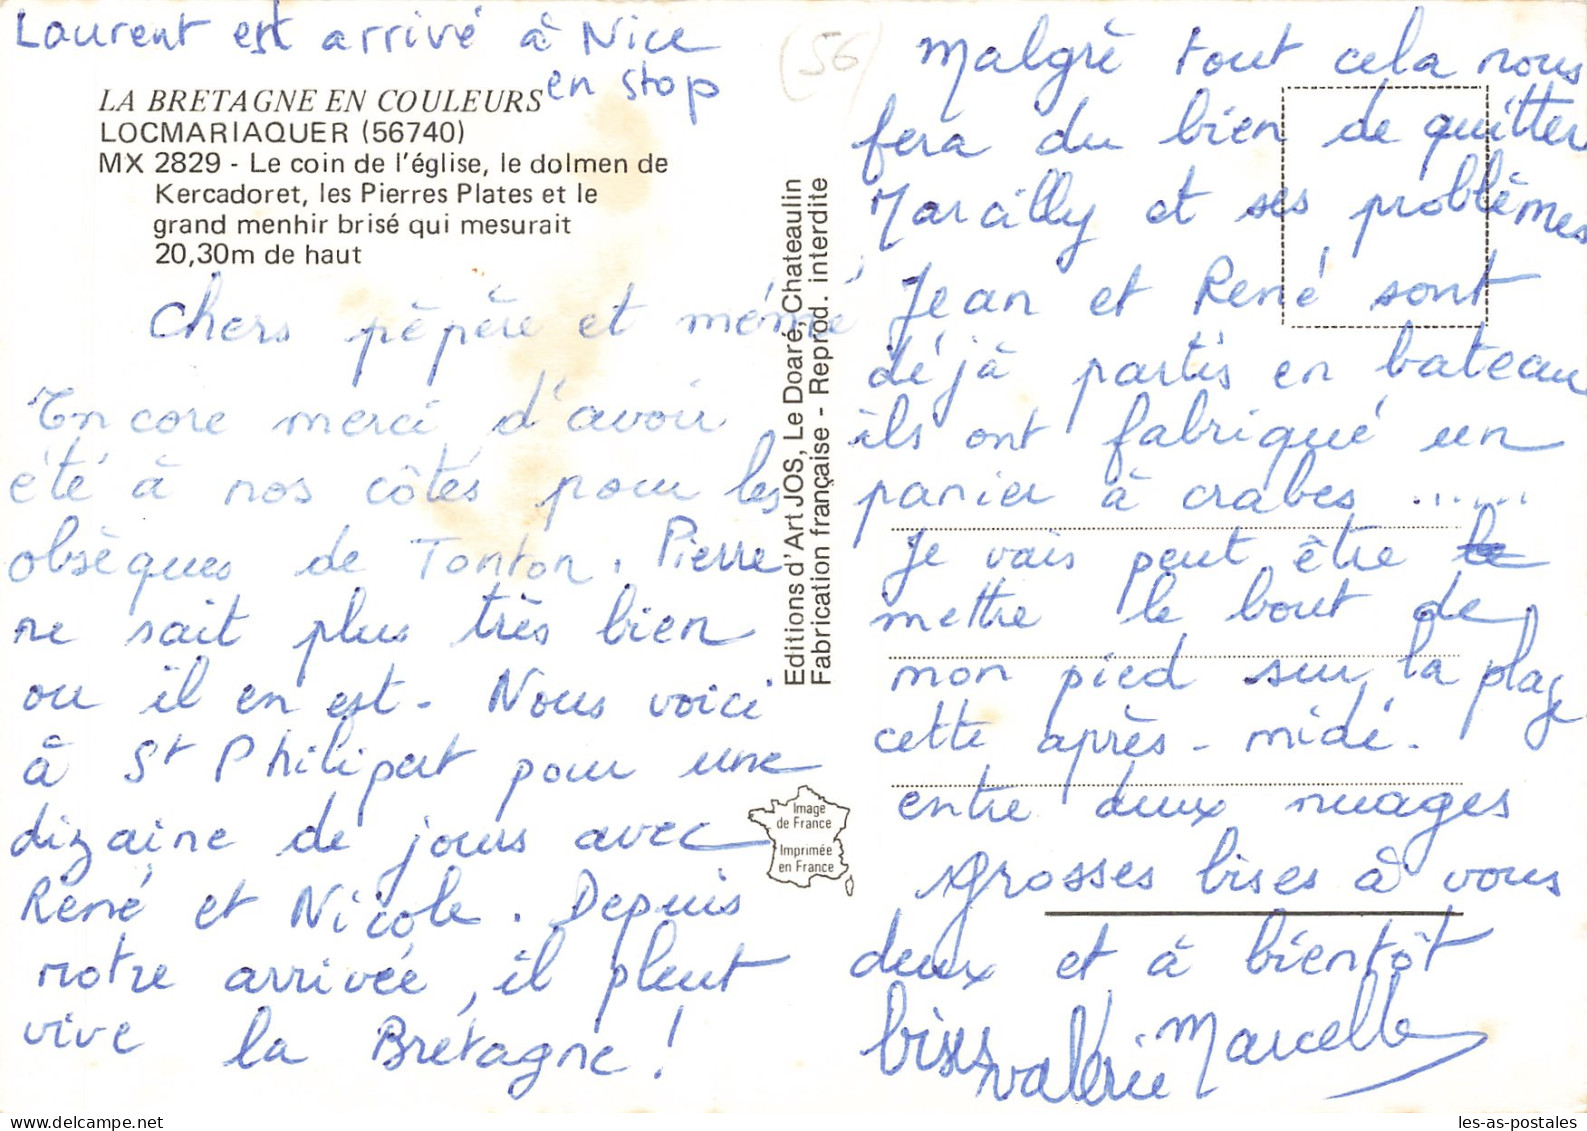 Laurent est arrivé à Nice
en stop
(56)
LA BRETAGNE EN COULEURS
LOCMARIAQUER (56740)
MX 2829 - Le coin de l'église, le dolmen de
Kercadoret, les Pierres Plates et le
grand menhir brisé qui mesurait
20,30m de haut
Chers pépère et mémé
Encore merci d'avoir
été à nos côtés pour les
obsèques de Tonton. Pierre
ne sait plus très bien
ou il en est. Nous voici
à St Philipert pour une
dizaine de jours avec
René et Nicole. Depuis
notre arrivée, il pleut
vive la Brétagne !
Editions d'Art JOS, Le Doaré, Chateaulin
Fabrication française - Reprod. interdite
Image
de France
Imprimée
en France
Malgrè tout cela nous
fera du bien de quitter
Marcilly et ses problèmes
Jean et René sont
déjà partis en bateau
ils ont fabriqué un
panier à crabes ......
Je vais peut être le
mettre le bout de
mon pied sur la plage
cette après-midi.
entre deux nuages
grosses bises à vous
deux et à bientôt
bises Valérie Marcelle
les-as-postales.com